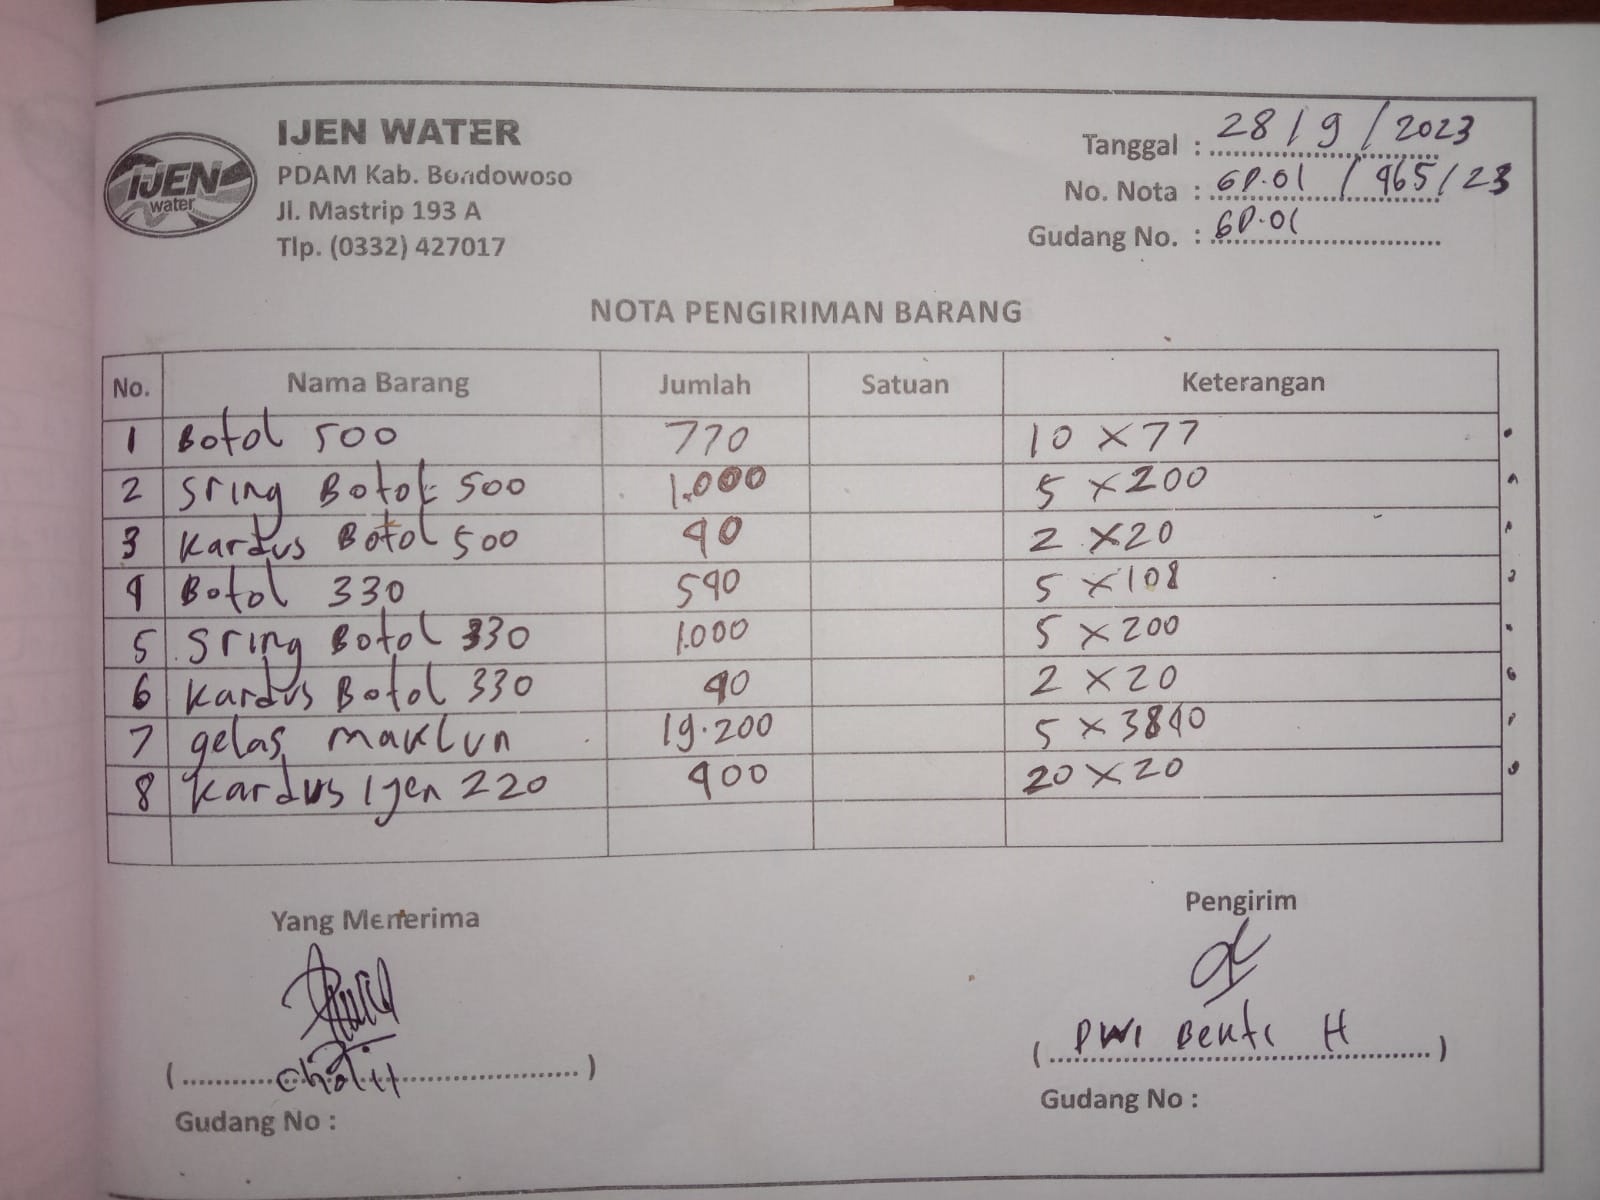 IJEN WATER
PDAM Kab. Bondowoso
Jl. Mastrip 193 A
Tlp. (0332) 427017
IJEN
water
Tanggal : 28 / 9 / 2023
No. Nota : GD.01 / 465 / 23
Gudang No. : GD.01
NOTA PENGIRIMAN BARANG
No. Nama Barang Jumlah Satuan Keterangan
1 Botol 500 770 10 X 77
2 Sring Botol 500 1.000 5 X 200
3 Kardus Botol 500 40 2 X 20
4 Botol 330 540 5 X 108
5 Sring Botol 330 1.000 5 X 200
6 Kardus Botol 330 40 2 X 20
7 gelas maklun 19.200 5 X 3840
8 Kardus Ijen 220 400 20 X 20
Yang Menerima
Pengirim
( Cholil )
( DWI Bekti H )
Gudang No :
Gudang No :